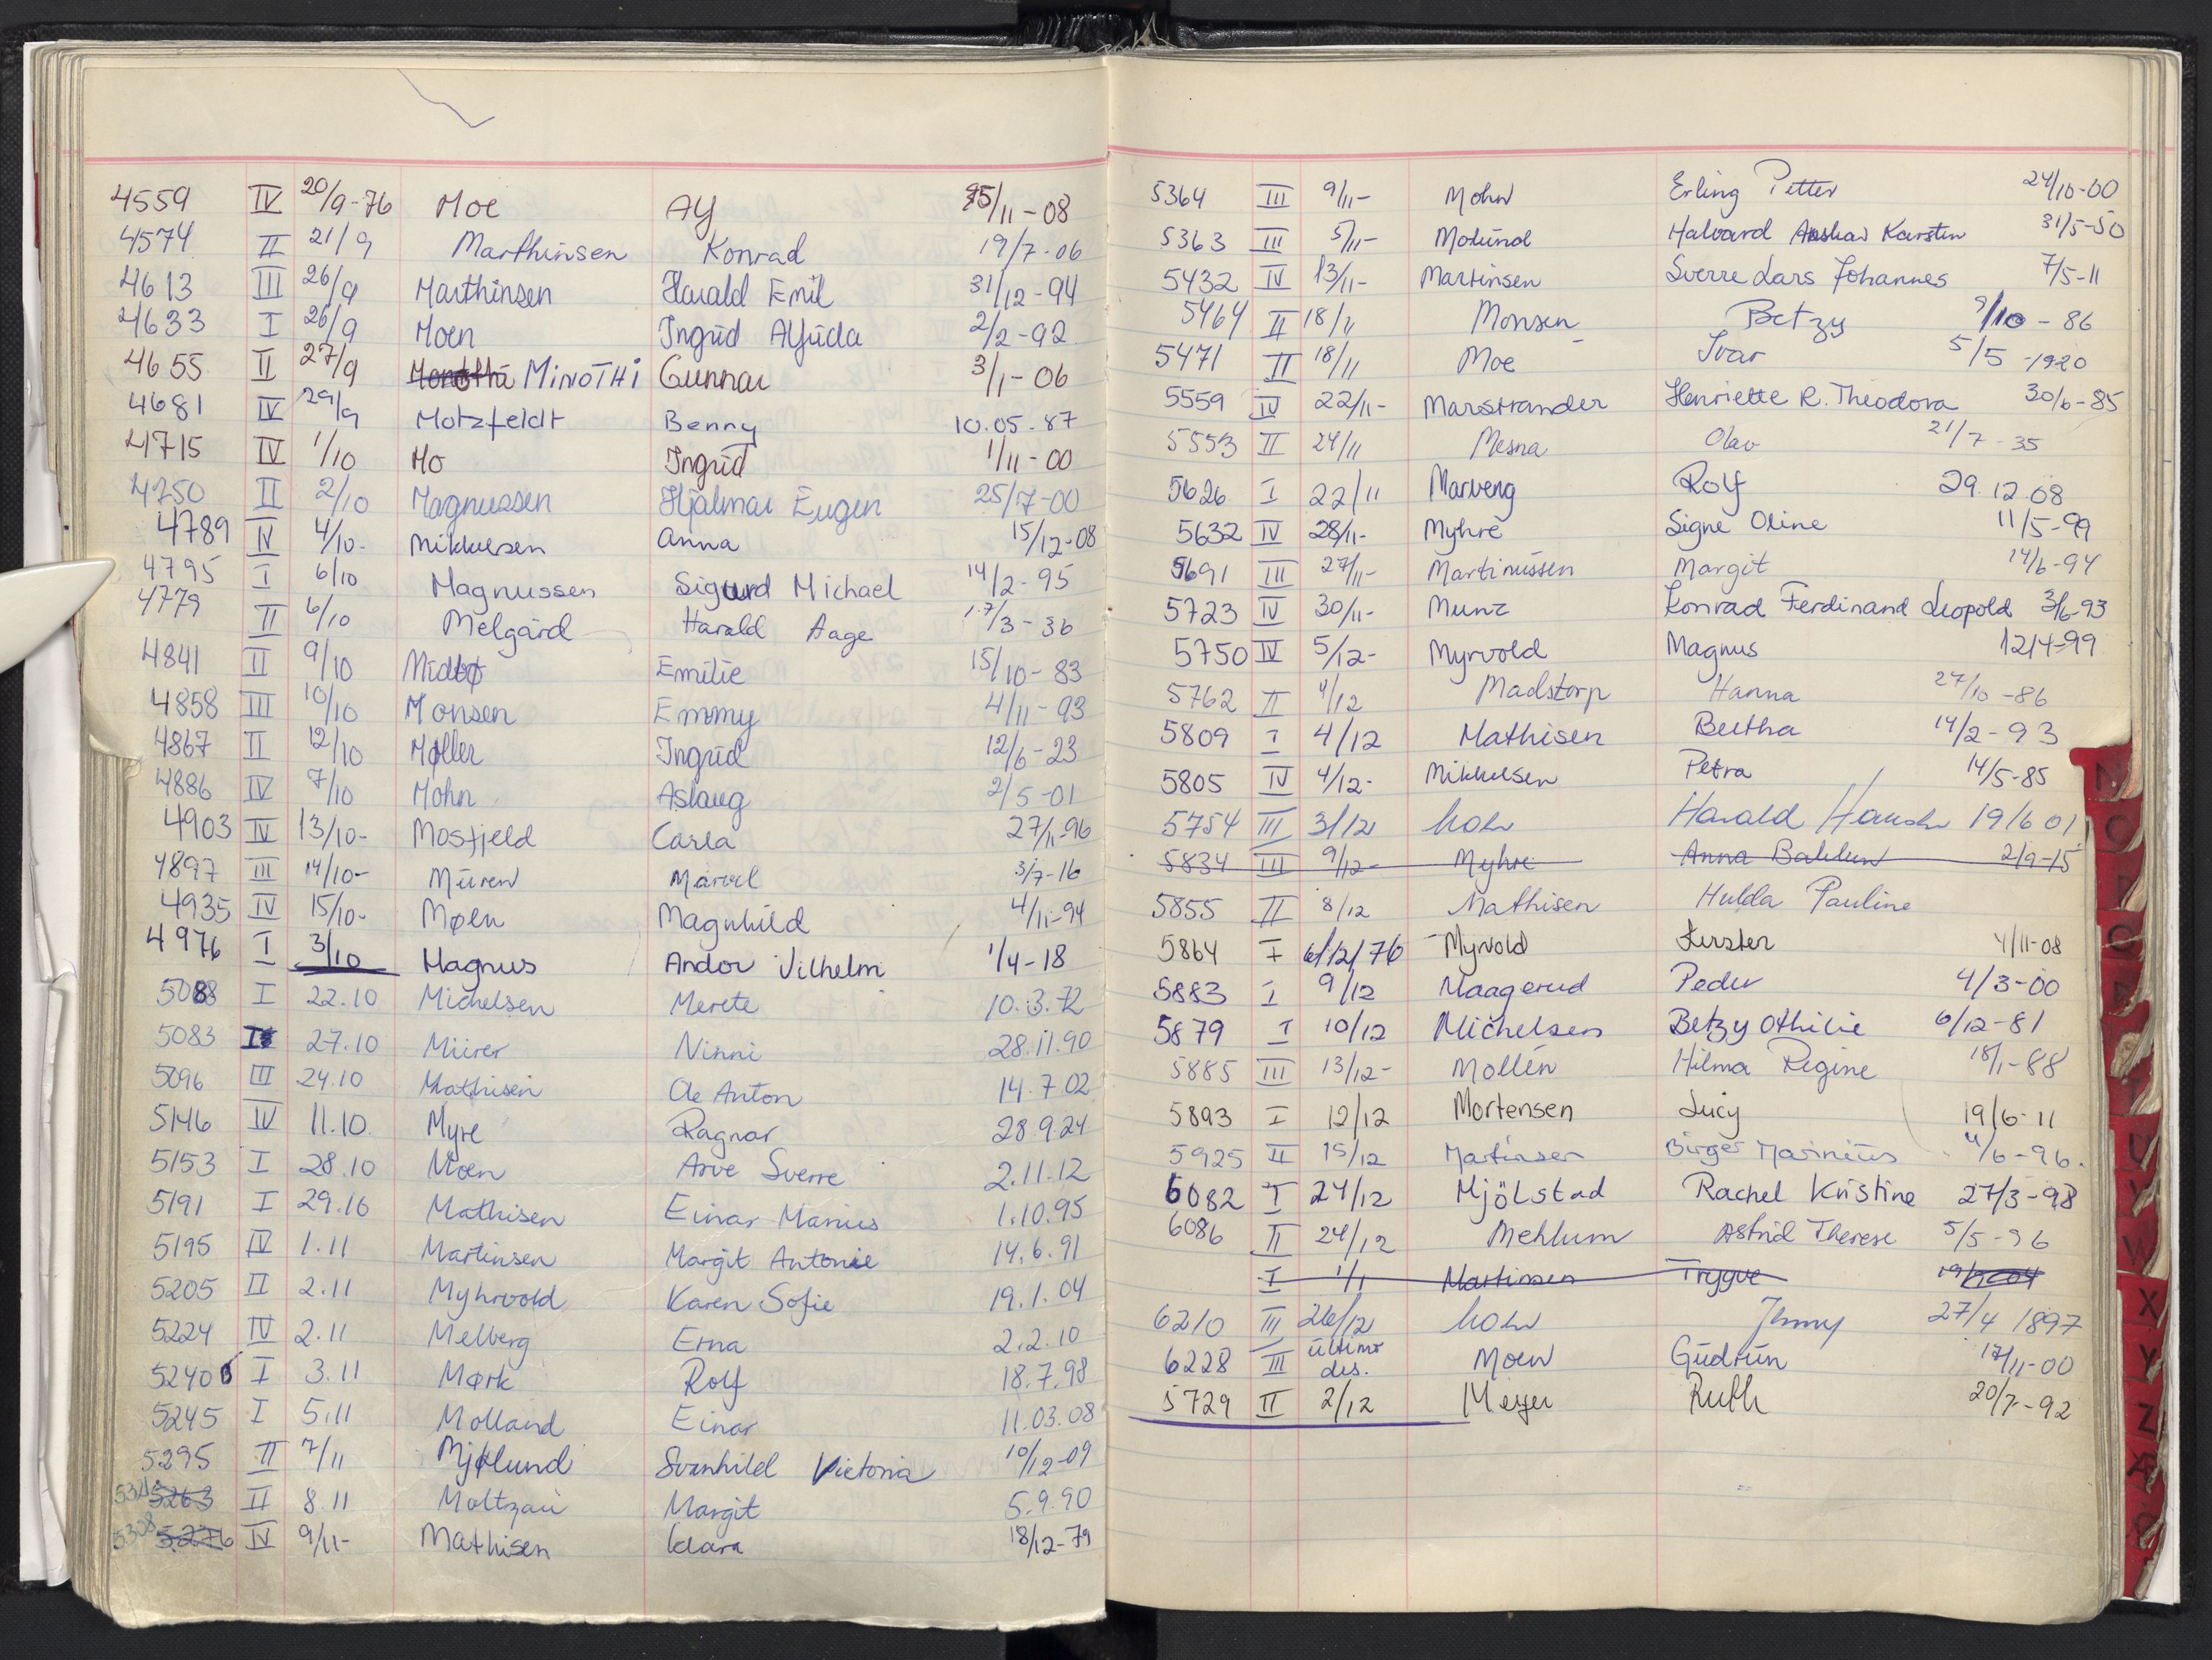 4559 IV 20/9-76 Moe Alf 25/11-08
4574 II 21/9 Marthinsen Konrad 19/7-06
4613 III 26/9 Marthinsen Harald Emil 31/12-94
4633 I 26/9 Moen Ingrid Alfrida 2/2-92
4655 II 27/9 MINOTHI Gunnar 3/1-06
4681 IV 29/9 Motzfeldt Benny 10.05.87
4715 IV 1/10 Mo Ingrid 1/11-00
4750 II 2/10 Magnussen Hjalmar Eugen 25/7-00
4789 IV 4/10- Mikkelsen Anna 15/12-08
4795 I 6/10 Magnussen Sigurd Michael 14/2-95
4779 II 6/10 Melgård Harald Aage 17/3-36
4841 II 9/10 Midbø Emilie 15/10-83
4858 III 10/10 Monsen Emmy 4/11-93
4867 II 12/10 Møller Ingrid 12/6-23
4886 IV 7/10 Mohn Aslaug 2/5-01
4903 IV 13/10- Mosfjeld Carla 27/1-96
4897 III 14/10- Müren 3/7-16
4935 IV 15/10- Møen Magnhild 4/11-94
4976 I 3/10 Magnus Andor Vilhelm 1/4-18
5088 I 22.10 Michelsen Merete 10.3.72
5083 I 27.10 Mürer Ninni 28.11.90
5096 III 24.10 Mathisen Ole Anton 14.7.02
5146 IV 11.10. Myre Ragnar 28.9.24
5153 I 28.10 Moen Arve Sverre 2.11.12
5191 I 29.10 Mathisen Einar Marius 1.10.95
5195 IV 1.11 Martinsen Margit Antonie 14.6.91
5205 II 2.11 Myhrvold Karen Sofie 19.1.04
5224 IV 2.11 Melberg Erna 2.2.10
5240 I 3.11 Mørk Rolf 18.7.98
5245 I 5.11 Molland Einar 11.03.08
5295 II 7/11 Mjølund Svanhild Victoria 10/12-09
5263 II 8.11 Moltzau Margit 5.9.90
5308 5276 IV 9/11- Mathisen Klara 18/12-79
5364 III 9/11- Mohn Erling Petter 24/10-00
5363 III 5/11- Molund Halvard Karsten 31/5-50
5432 IV 13/11- Martinsen Sverre Lars Johannes 7/5-11
5464 II 18/11 Monsen Betzy 9/10-86
5471 II 18/11 Moe Ivar 5/5-1920
5559 IV 22/11- Marstrander Henriette R. Theodora 30/6-85
5553 II 24/11 Mesna Olav 21/7-35
5626 I 22/11 Marveng Rolf 29.12.08
5632 IV 28/11- Myhre Signe Oline 11/5-99
5691 III 27/11- Martinussen Margit 14/6-94
5723 IV 30/11- Munz Konrad Ferdinand Leopold 3/6-93
5750 IV 5/12- Myrvold Magnus 12/4-99
5762 II 4/12 Madstorp Hanna 27/10-86
5809 I 4/12 Mathisen Bertha 14/2-93
5805 IV 4/12- Mikkelsen Petra 14/5-85
5754 III 3/12 Mohr Harald 19/6 01
5834 III 9/12- Myhre Anna 2/9-15
5855 II 8/12 Mathisen Hulda Pauline
5864 I 6/12/76 Myrvold Kirsten 4/11-08
5883 I 9/12 Maagerud Peder 4/3-00
5879 I 10/12 Michelsen Betzy Othilie 6/12-81
5885 III 13/12- Mollén Hilma Regine 18/1-88
5893 I 12/12 Mortensen Lucy 19/6-11
5925 II 15/12 Martinsen Birger Marinius 4/6-96.
6082 I 24/12 Mjölstad Rachel Kristine 27/3-98
6086 II 24/12 Mehlum Astrid Therese 5/5-96
I 1/1 Martinsen Trygve
6210 III 26/12 Mohr Jenny 27/4 1897
6228 III ultimo des. Moen Gudrun 17/11-00
5729 II 2/12 Meyer Ruth 20/7-92